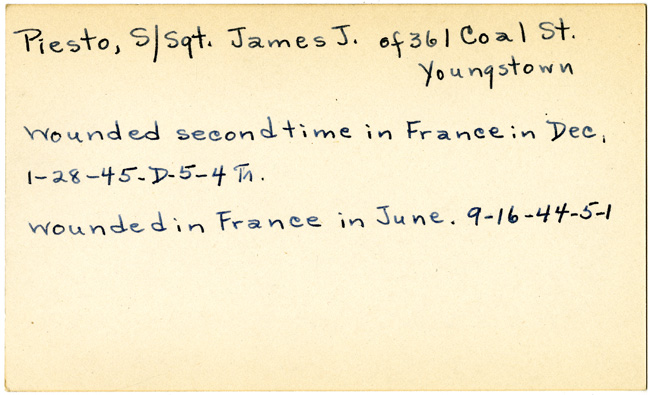 Piesto, S/Sgt. James J. of 361 Coal St.
Youngstown
Wounded second time in France in Dec,
1-28-45-D-5-4 Th.
Wounded in France in June. 9-16-44-5-1